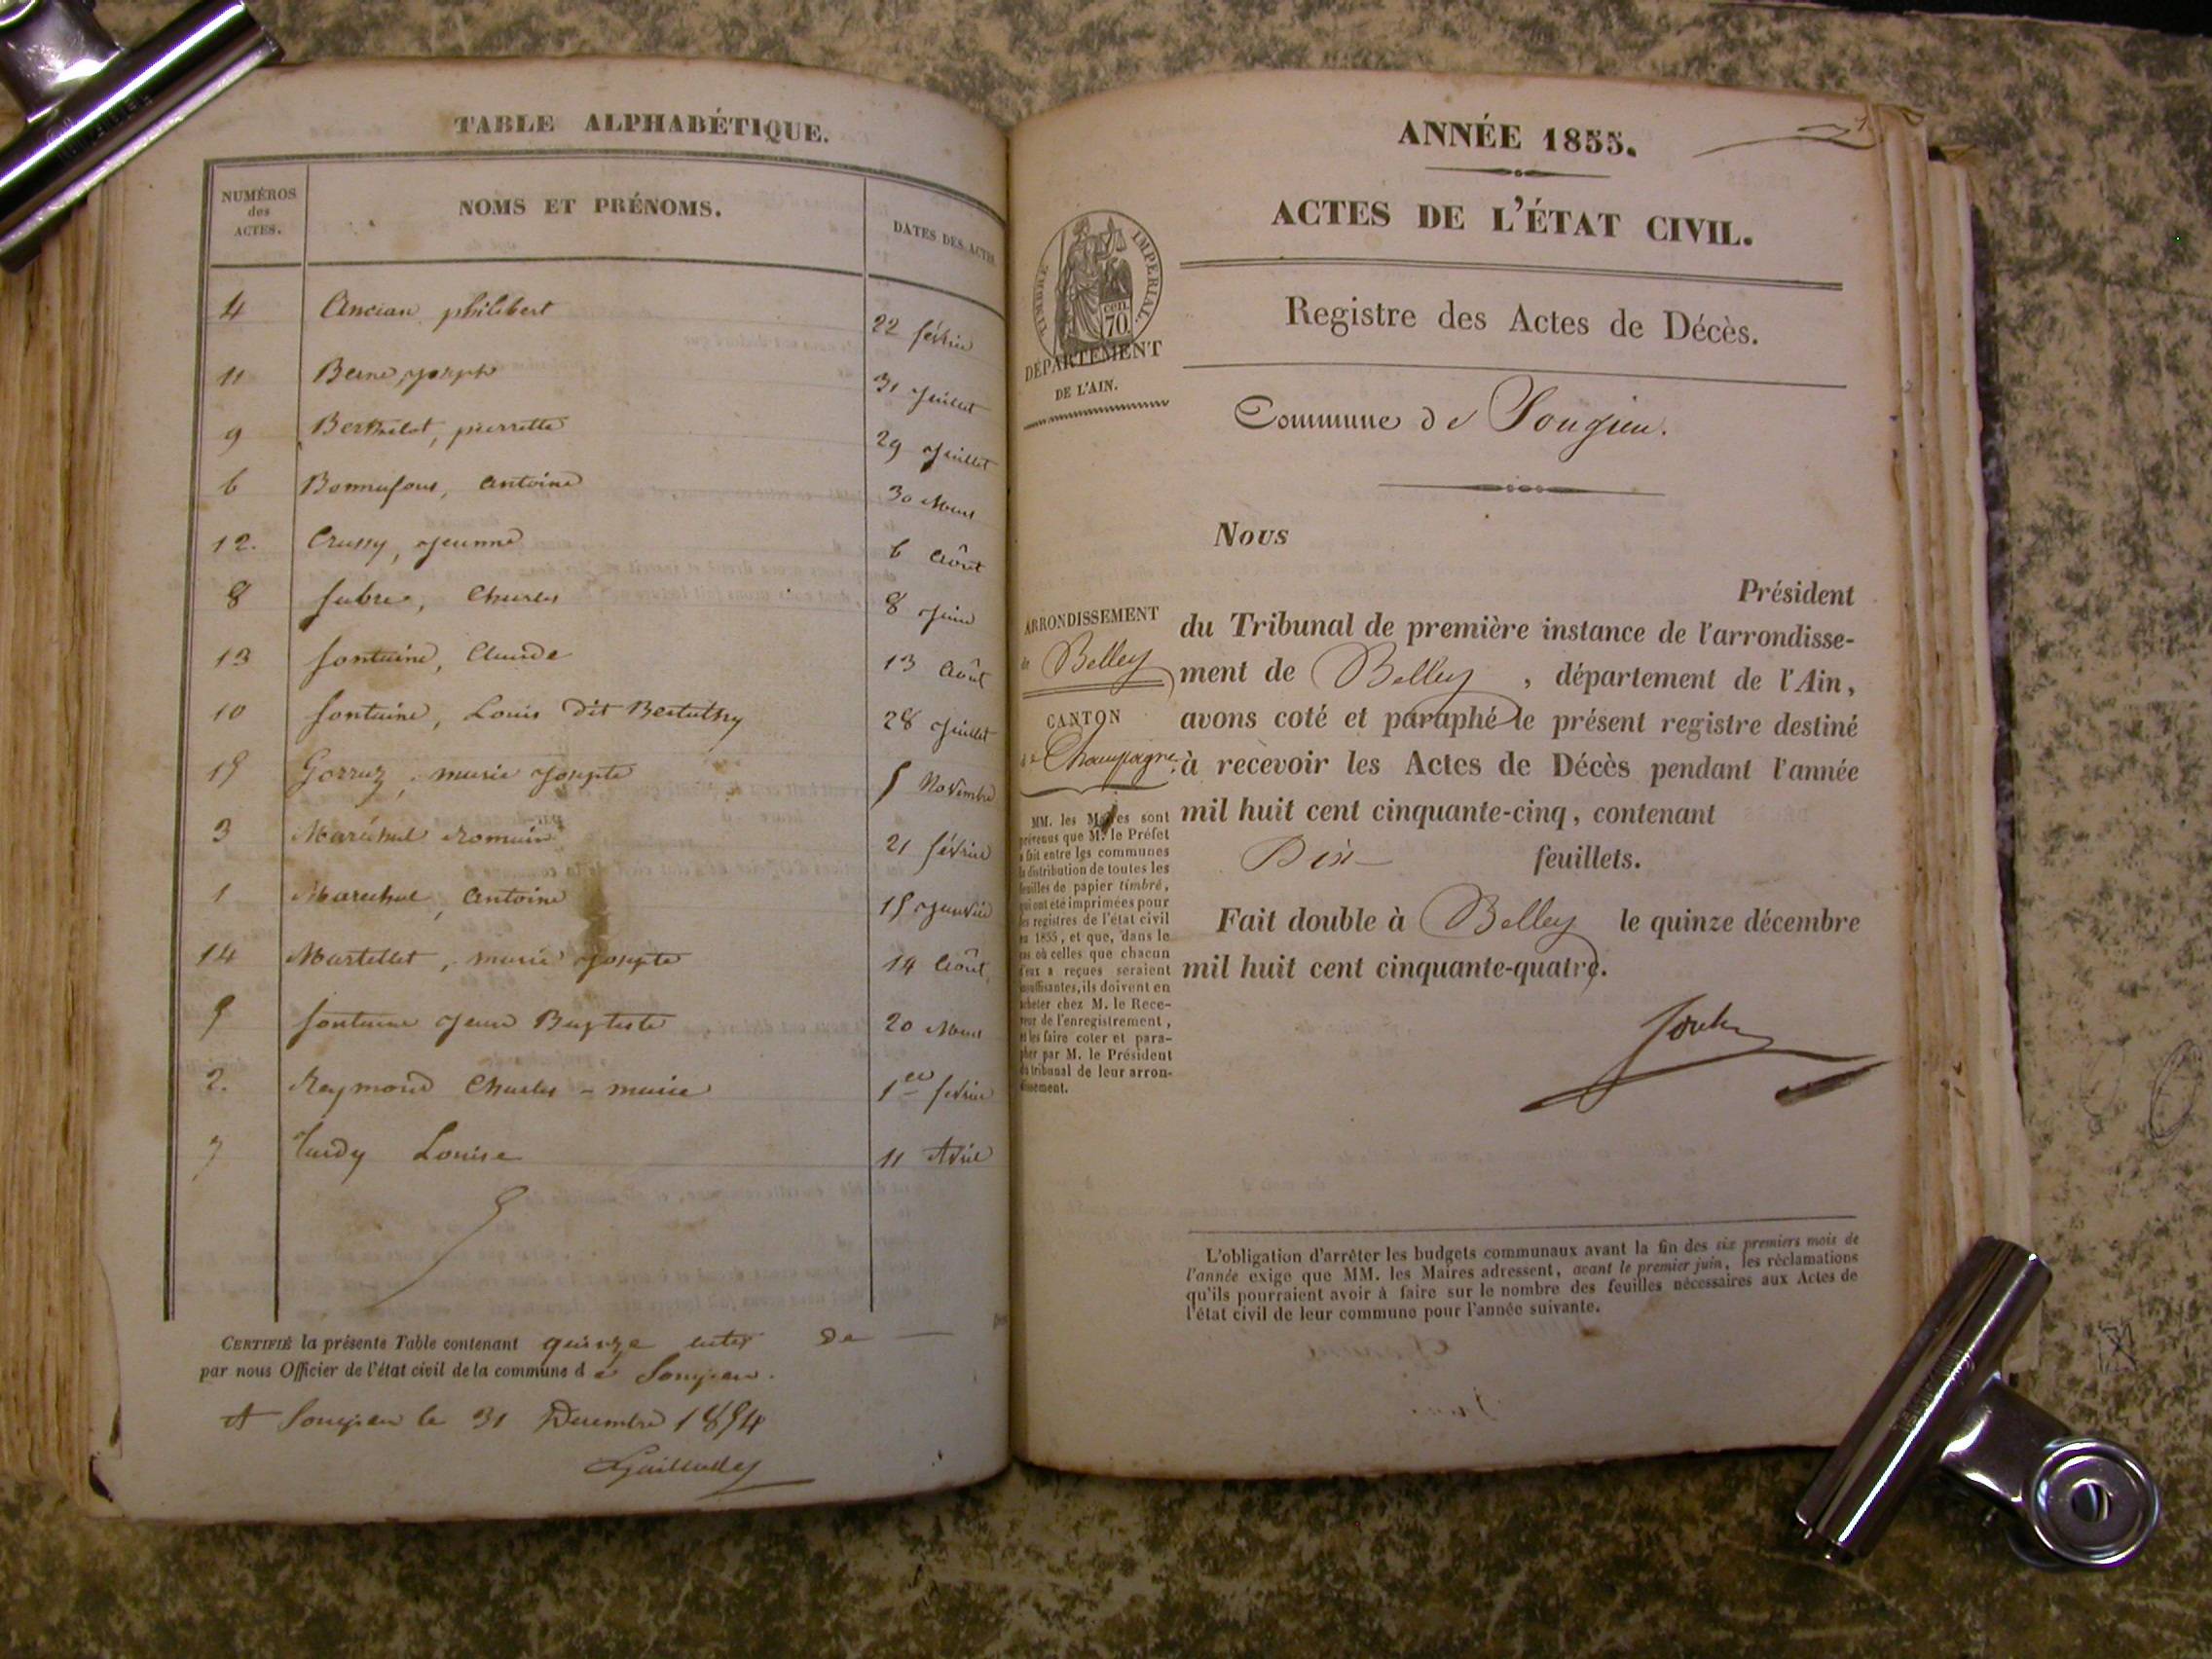 TABLE ALPHABÉTIQUE.
NUMÉROS des ACTES. NOMS ET PRÉNOMS. DATES DES ACTES
4 Ancian philibert 22 février
11 Berne, joseph 31 juillet
9 Berthelot, pierrette 29 juillet
6 Bonnefous, Antoine 30 Mars
12. Crussy, jeanne 6 Août
8 fabre, Charles 8 juin
13 fontaine, Claude 13 Août
10 fontaine, Louis dit 28 juillet
15 marie josepte 5 Novembre
3 Maréchal romain 21 février
1 Marechal, Antoine 15 janvier
14 Martellet, marie josepte 14 Août
5 fontaine jean Baptiste 20 Mars
2. Reymond Charles - marie 1er février
7 Tardy Louise 11 Avril
CERTIFIÉ la présente Table contenant quinze actes De
par nous Officier de l'état civil de la commune d e Songieu.
A Songieu le 31 Decembre 1854
ANNÉE 1855.
ACTES DE L'ÉTAT CIVIL.
TIMBRE IMPÉRIAL.
70. cen
DÉPARTEMENT
DE L'AIN.
Registre des Actes de Décès.
Commune de Songieu.
ARRONDISSEMENT
de Belley
CANTON
de Champagne.
MM. les Maires sont
prévenus que M. le Préfet
a fait entre les communes
la distribution de toutes les
feuilles de papier timbré,
qui ont été imprimées pour
les registres de l'état civil
en 1855, et que, dans le
cas où celles que chacun
d'eux a reçues seraient
insuffisantes, ils doivent en
acheter chez M. le Rece-
veur de l'enregistrement,
et les faire coter et para-
pher par M. le Président
du tribunal de leur arron-
dissement.
Nous
Président
du Tribunal de première instance de l'arrondisse-
ment de Belley, département de l'Ain,
avons coté et paraphé le présent registre destiné
à recevoir les Actes de Décès pendant l'année
mil huit cent cinquante-cinq, contenant
Dix feuillets.
Fait double à Belley le quinze décembre
mil huit cent cinquante-quatre.
L'obligation d'arrêter les budgets communaux avant la fin des six premiers mois de
l'année exige que MM. les Maires adressent, avant le premier juin, les réclamations
qu'ils pourraient avoir à faire sur le nombre des feuilles nécessaires aux Actes de
l'état civil de leur commune pour l'année suivante.